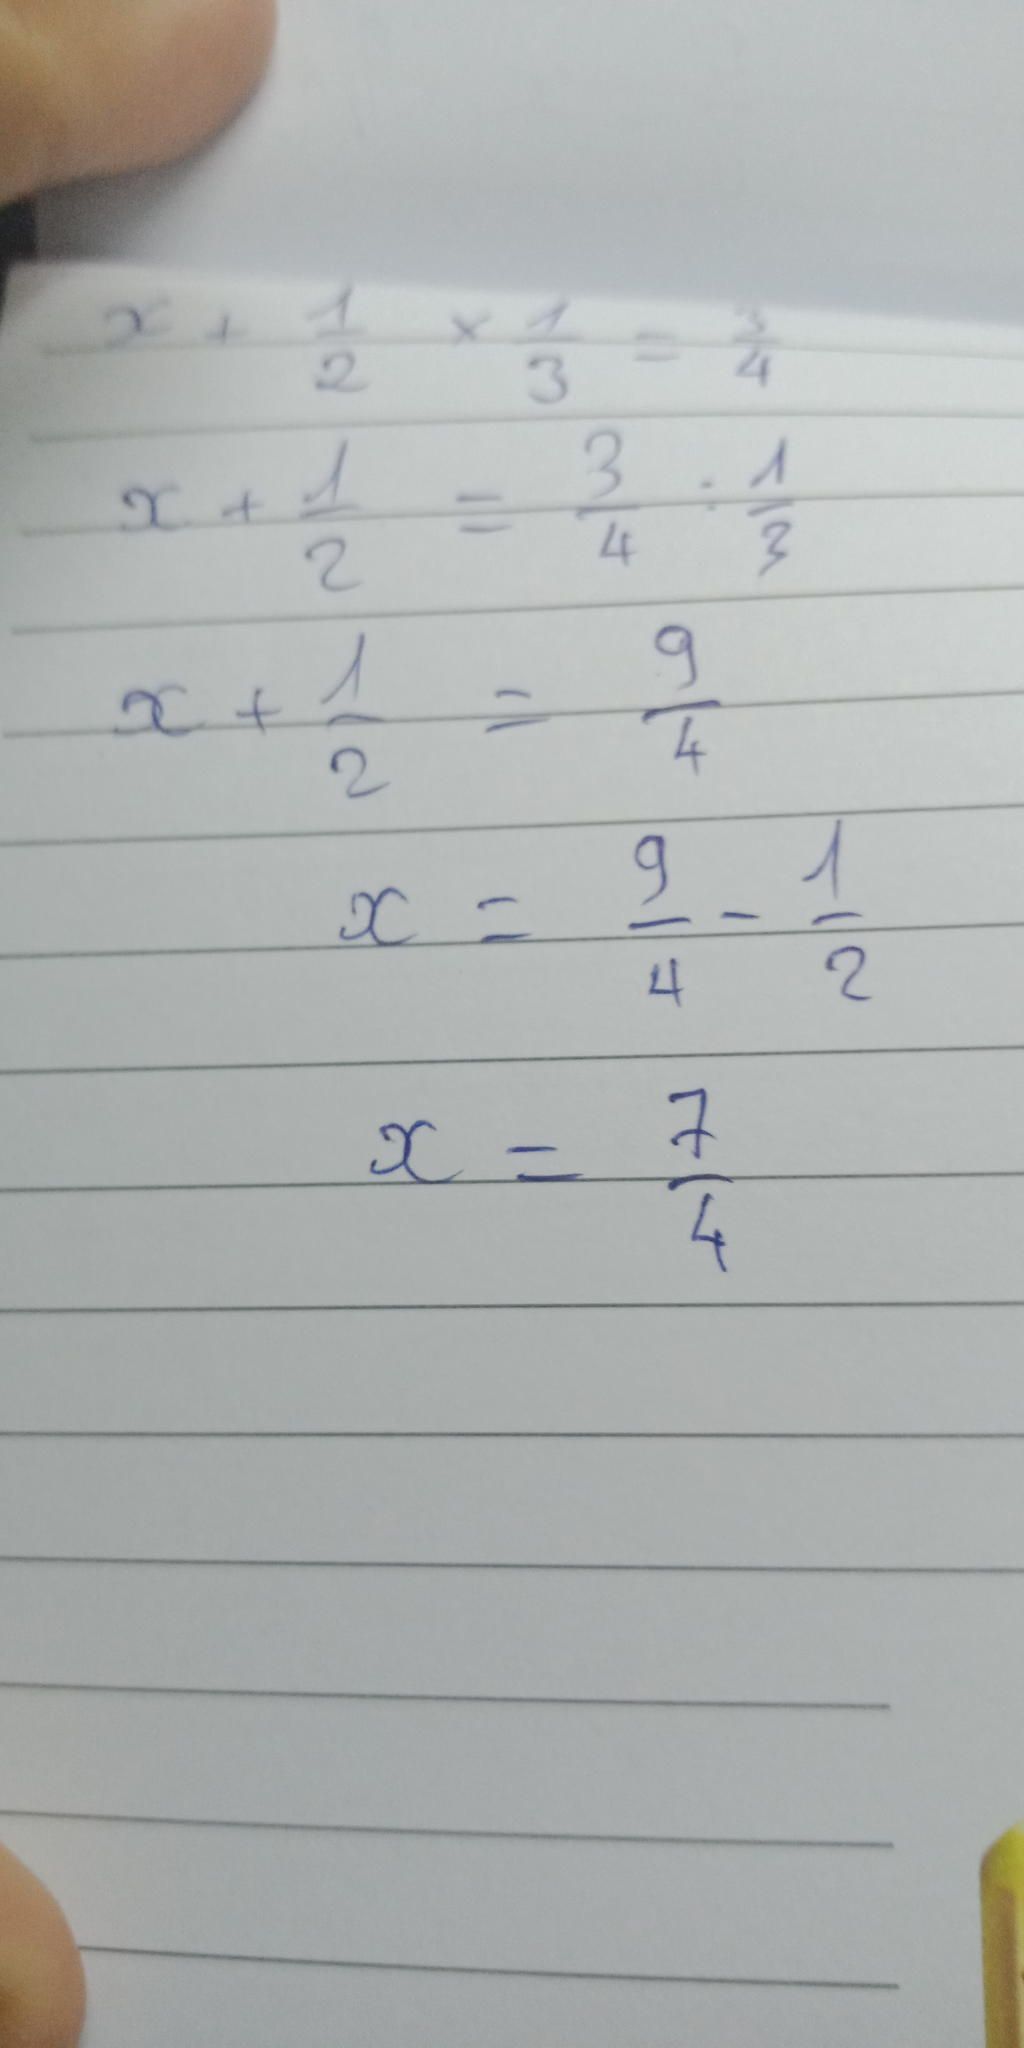 x + 1/2 × 1/3 = 3/4
x + 1/2 = 3/4 : 1/3
x + 1/2 = 9/4
x = 9/4 - 1/2
x = 7/4